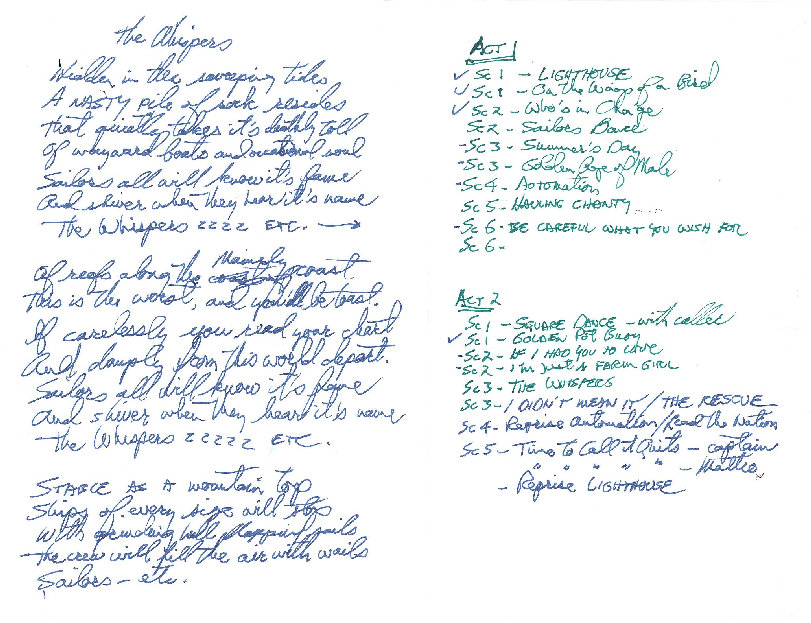 The Whispers
Hidden in the sweeping tides
A NASTY pile of rock resides
that quietly takes it's deathly toll
Of wayward boats and occasional soul
Sailors all will know it's fame
And shiver when they hear it's name
The Whispers zzzz ETC. →
Of reefs along the Mainely coast
This is the worst, and you'll be toast.
If carelessly you read your chart
And, damply from this world depart.
Sailors all will know it's fame
And shiver when they hear it's name
The Whispers zzzzz ETC.
STABLE AS A mountain top
Ships of every size will stop
With grinding hull flapping sails
The crew will fill the air with wails
Sailors - etc.
ACT 1
✓ Sc 1 - LIGHTHOUSE
✓ Sc 1 - On the Wings of a Bird
✓ Sc 2 - Who's in Charge
Sc 2 - Sailors Dance
- Sc 3 - Summer's Day
- Sc 3 - Golden Age of Male
- Sc 4 - Automation
Sc 5 - HAULING CHANTY ....
- Sc 6 - BE CAREFUL WHAT YOU WISH FOR
Sc 6 -
ACT 2
Sc 1 - SQUARE DANCE - with caller
✓ Sc 1 - GOLDEN POT Buoy
- Sc 2 - IF I HAD YOU TO LOVE
- Sc 2 - I'm JUST A FARM GIRL
Sc 3 - THE WHISPERS
Sc 3 - I DIDN'T MEAN IT / THE RESCUE
Sc 4 - Reprise Automation / Lead the Nation
Sc 5 - Time to Call it Quits - captain
" " " " " - Mattie
- Reprise LIGHTHOUSE